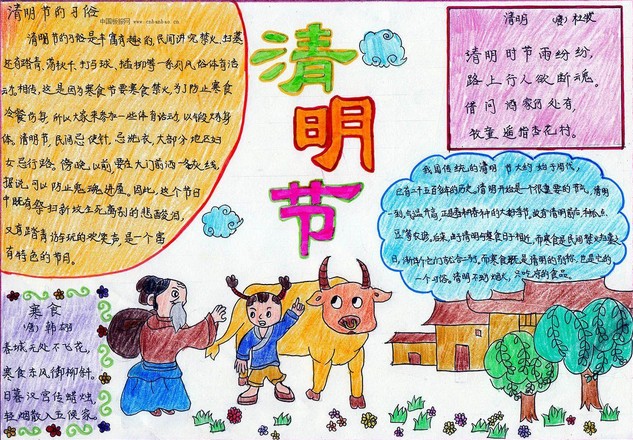 清明节的习俗
清明节的习俗是丰富有趣的,民间讲究禁火、扫墓
还有踏青、荡秋千、打马球、插柳等一系列风俗体育活
动,相传,这是因为寒食节要寒食禁火,为了防止寒食
冷餐伤身,所以大家来参加一些体育活动,以锻炼身
体。清明节,民间忌使针,忌洗衣,大部分地区妇
女忌行路。傍晚以前,要在大门前洒一条灰线,
据说可以防止鬼魂进屋。因此,这个节日
中既有祭扫新坟生死离别的悲酸泪,
又有踏青游玩的欢笑声,是一个富
有特色的节日。
中国板报网
www.cnbanbao.cn
清明节
清明 (唐) 杜牧
清明时节雨纷纷,
路上行人欲断魂。
借问酒家何处有,
牧童遥指杏花村。
我国传统的清明节大约始于周代,
已有二千五百多年的历史。清明开始是个很重要的节气,清明
一到,气温升高,正是春耕春种的大好季节,故有清明前后,种瓜点
豆
后来,由于清明与寒食日子相近,而寒食是民间禁火扫墓之
日,渐渐的
而寒食既是清明的别称,也是它的
一个习俗。清明不动烟火,只吃凉的食品。
寒食
(唐) 韩翃
春城无处不飞花,
寒食东风御柳斜。
日暮汉宫传蜡烛,
轻烟散入五侯家。